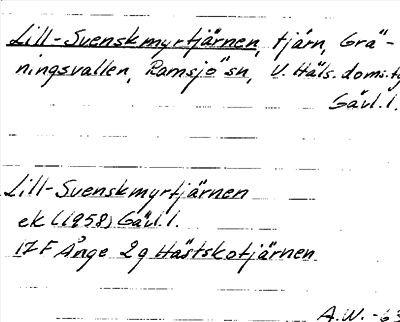 Lill-Svenskmyrtjärnen, tjärn, Grä-
ningsvallen, Ramsjö sn, V. Häls. doms.
Gävl.l.
Lill-Svenskmyrtjärnen
ek (1958) Gävl.l.
17 F Ånge 2g Hästskotjärnen
A.W. -63